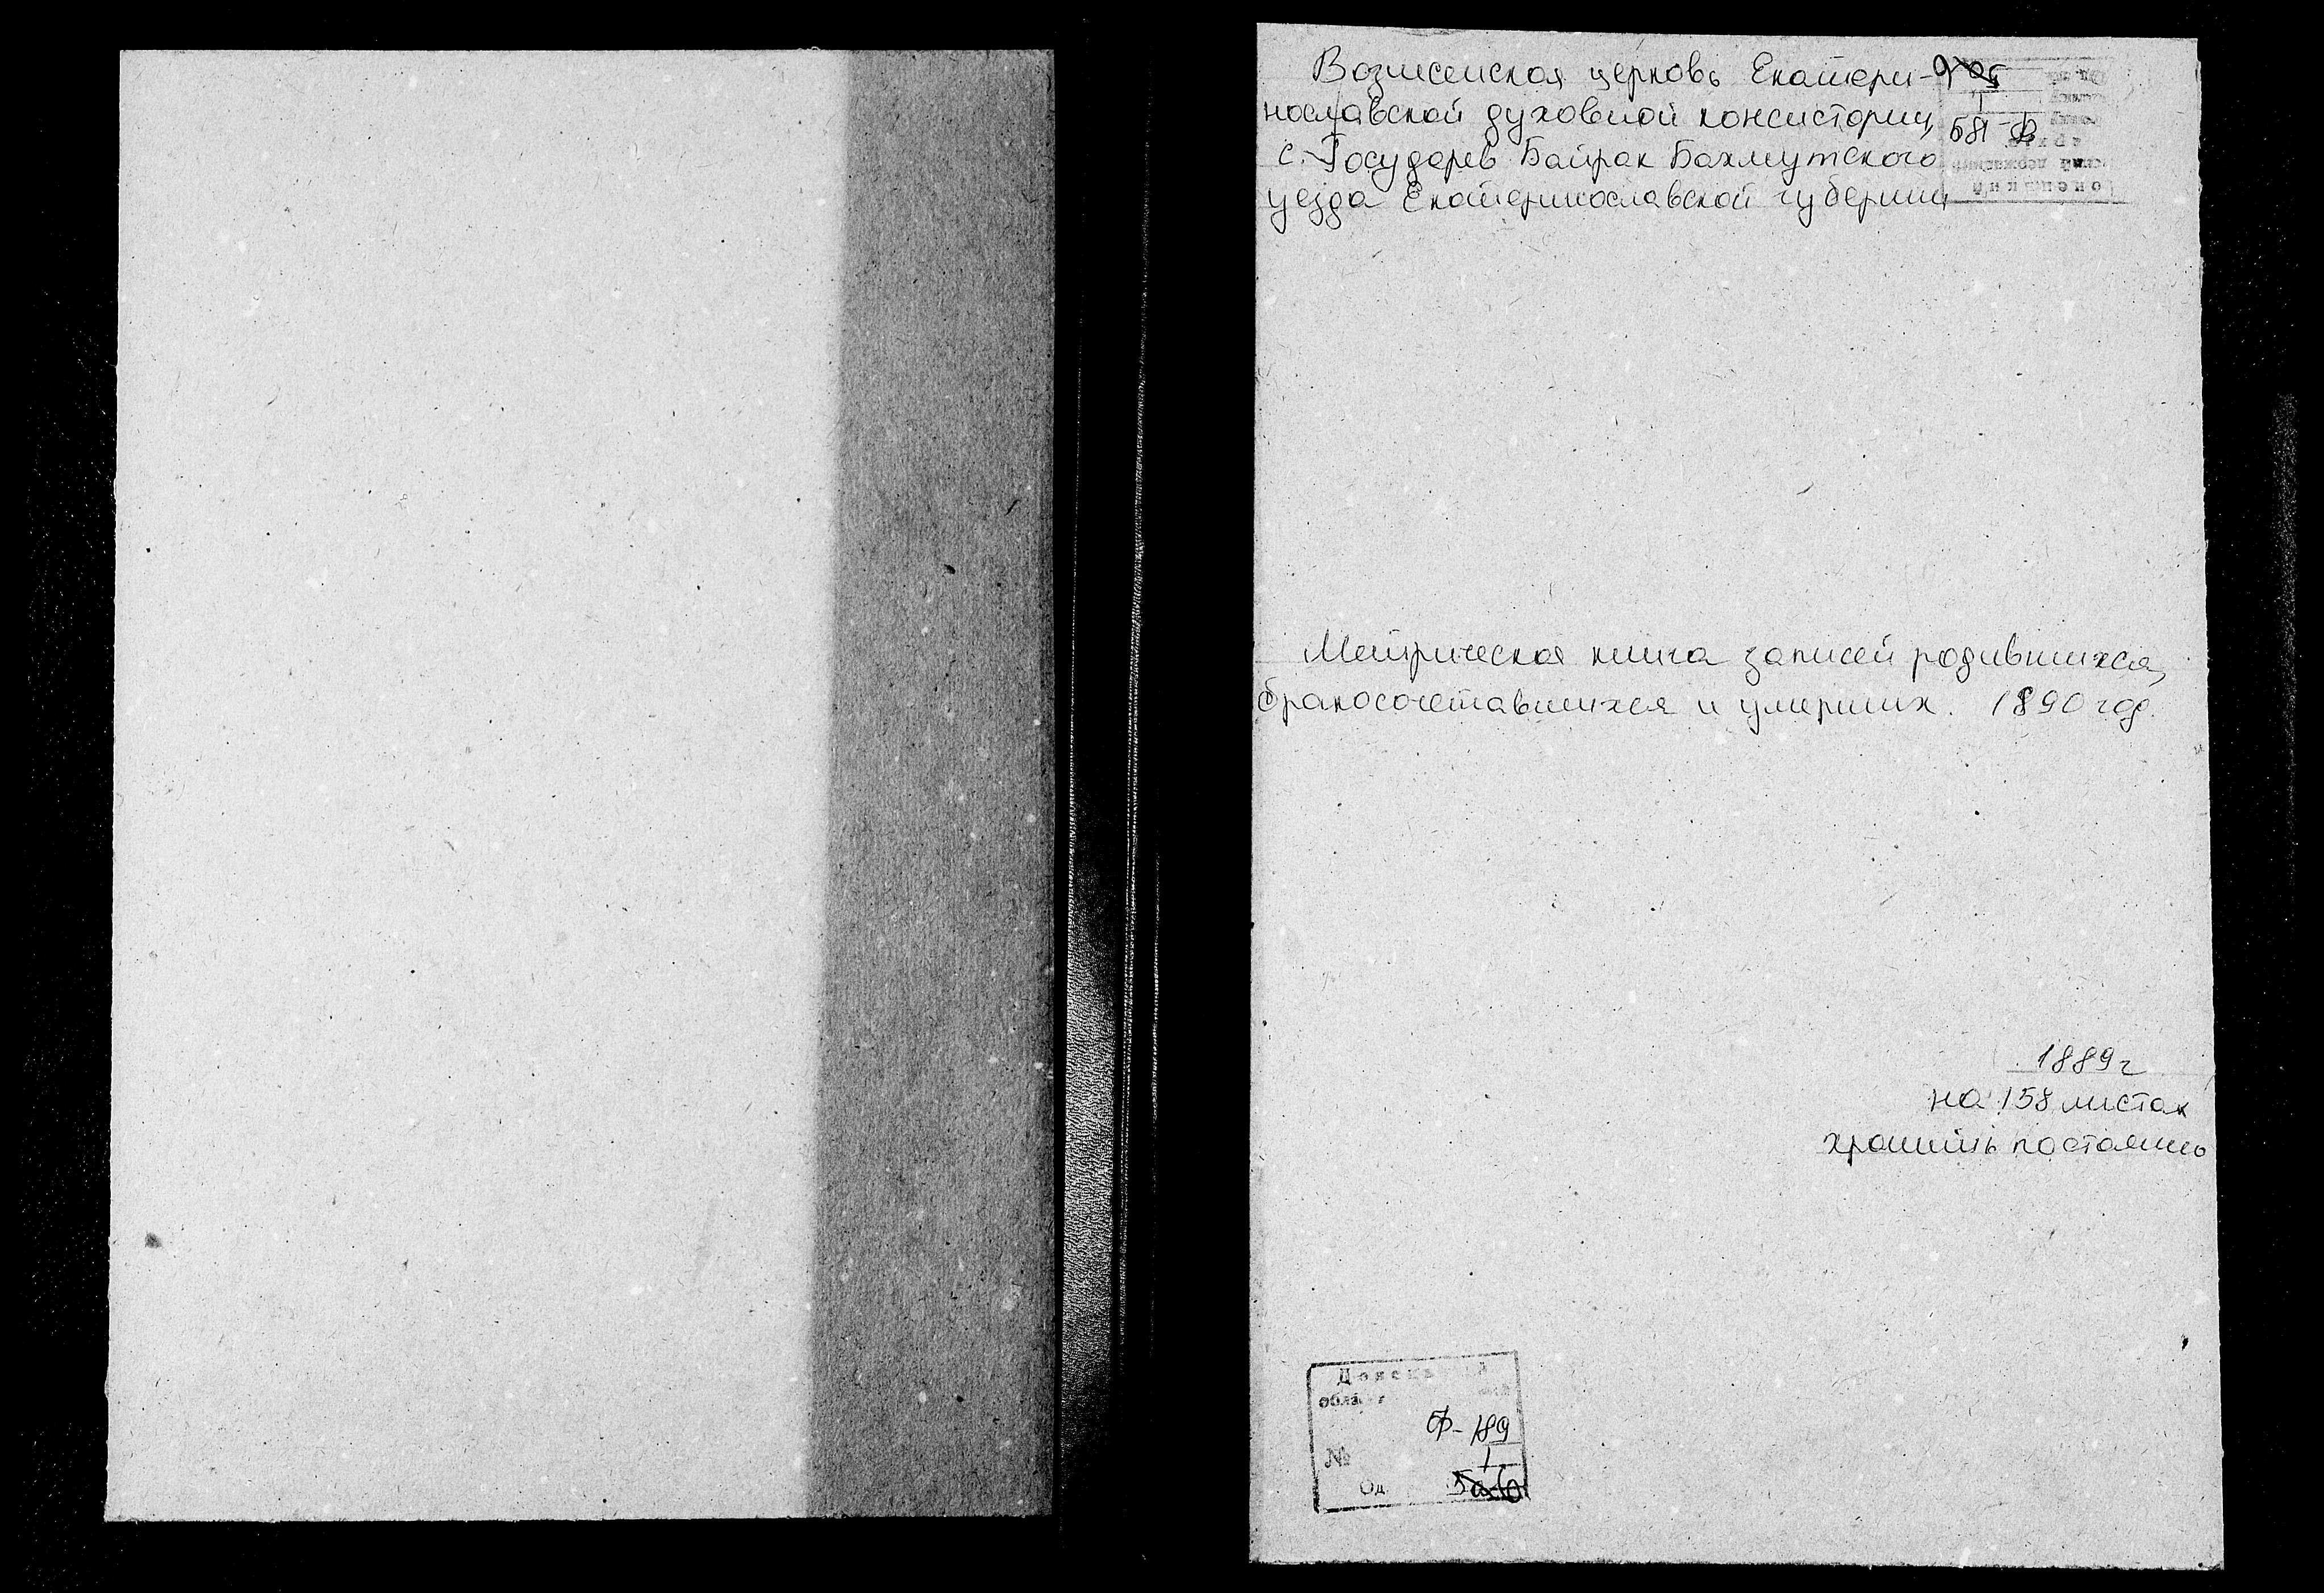 Вознесенская церковь Екатери-
нославской духовной консистории,
с. Государев Байрак Бахмутского
уезда Екатеринославской губернии
1
581-
Метрическая книга записей родившихся,
бракосочетавшихся и умерших. 1890 год.
1889 г
на 158 листах
хранить постоянно
Ф-189
№ 1
Од